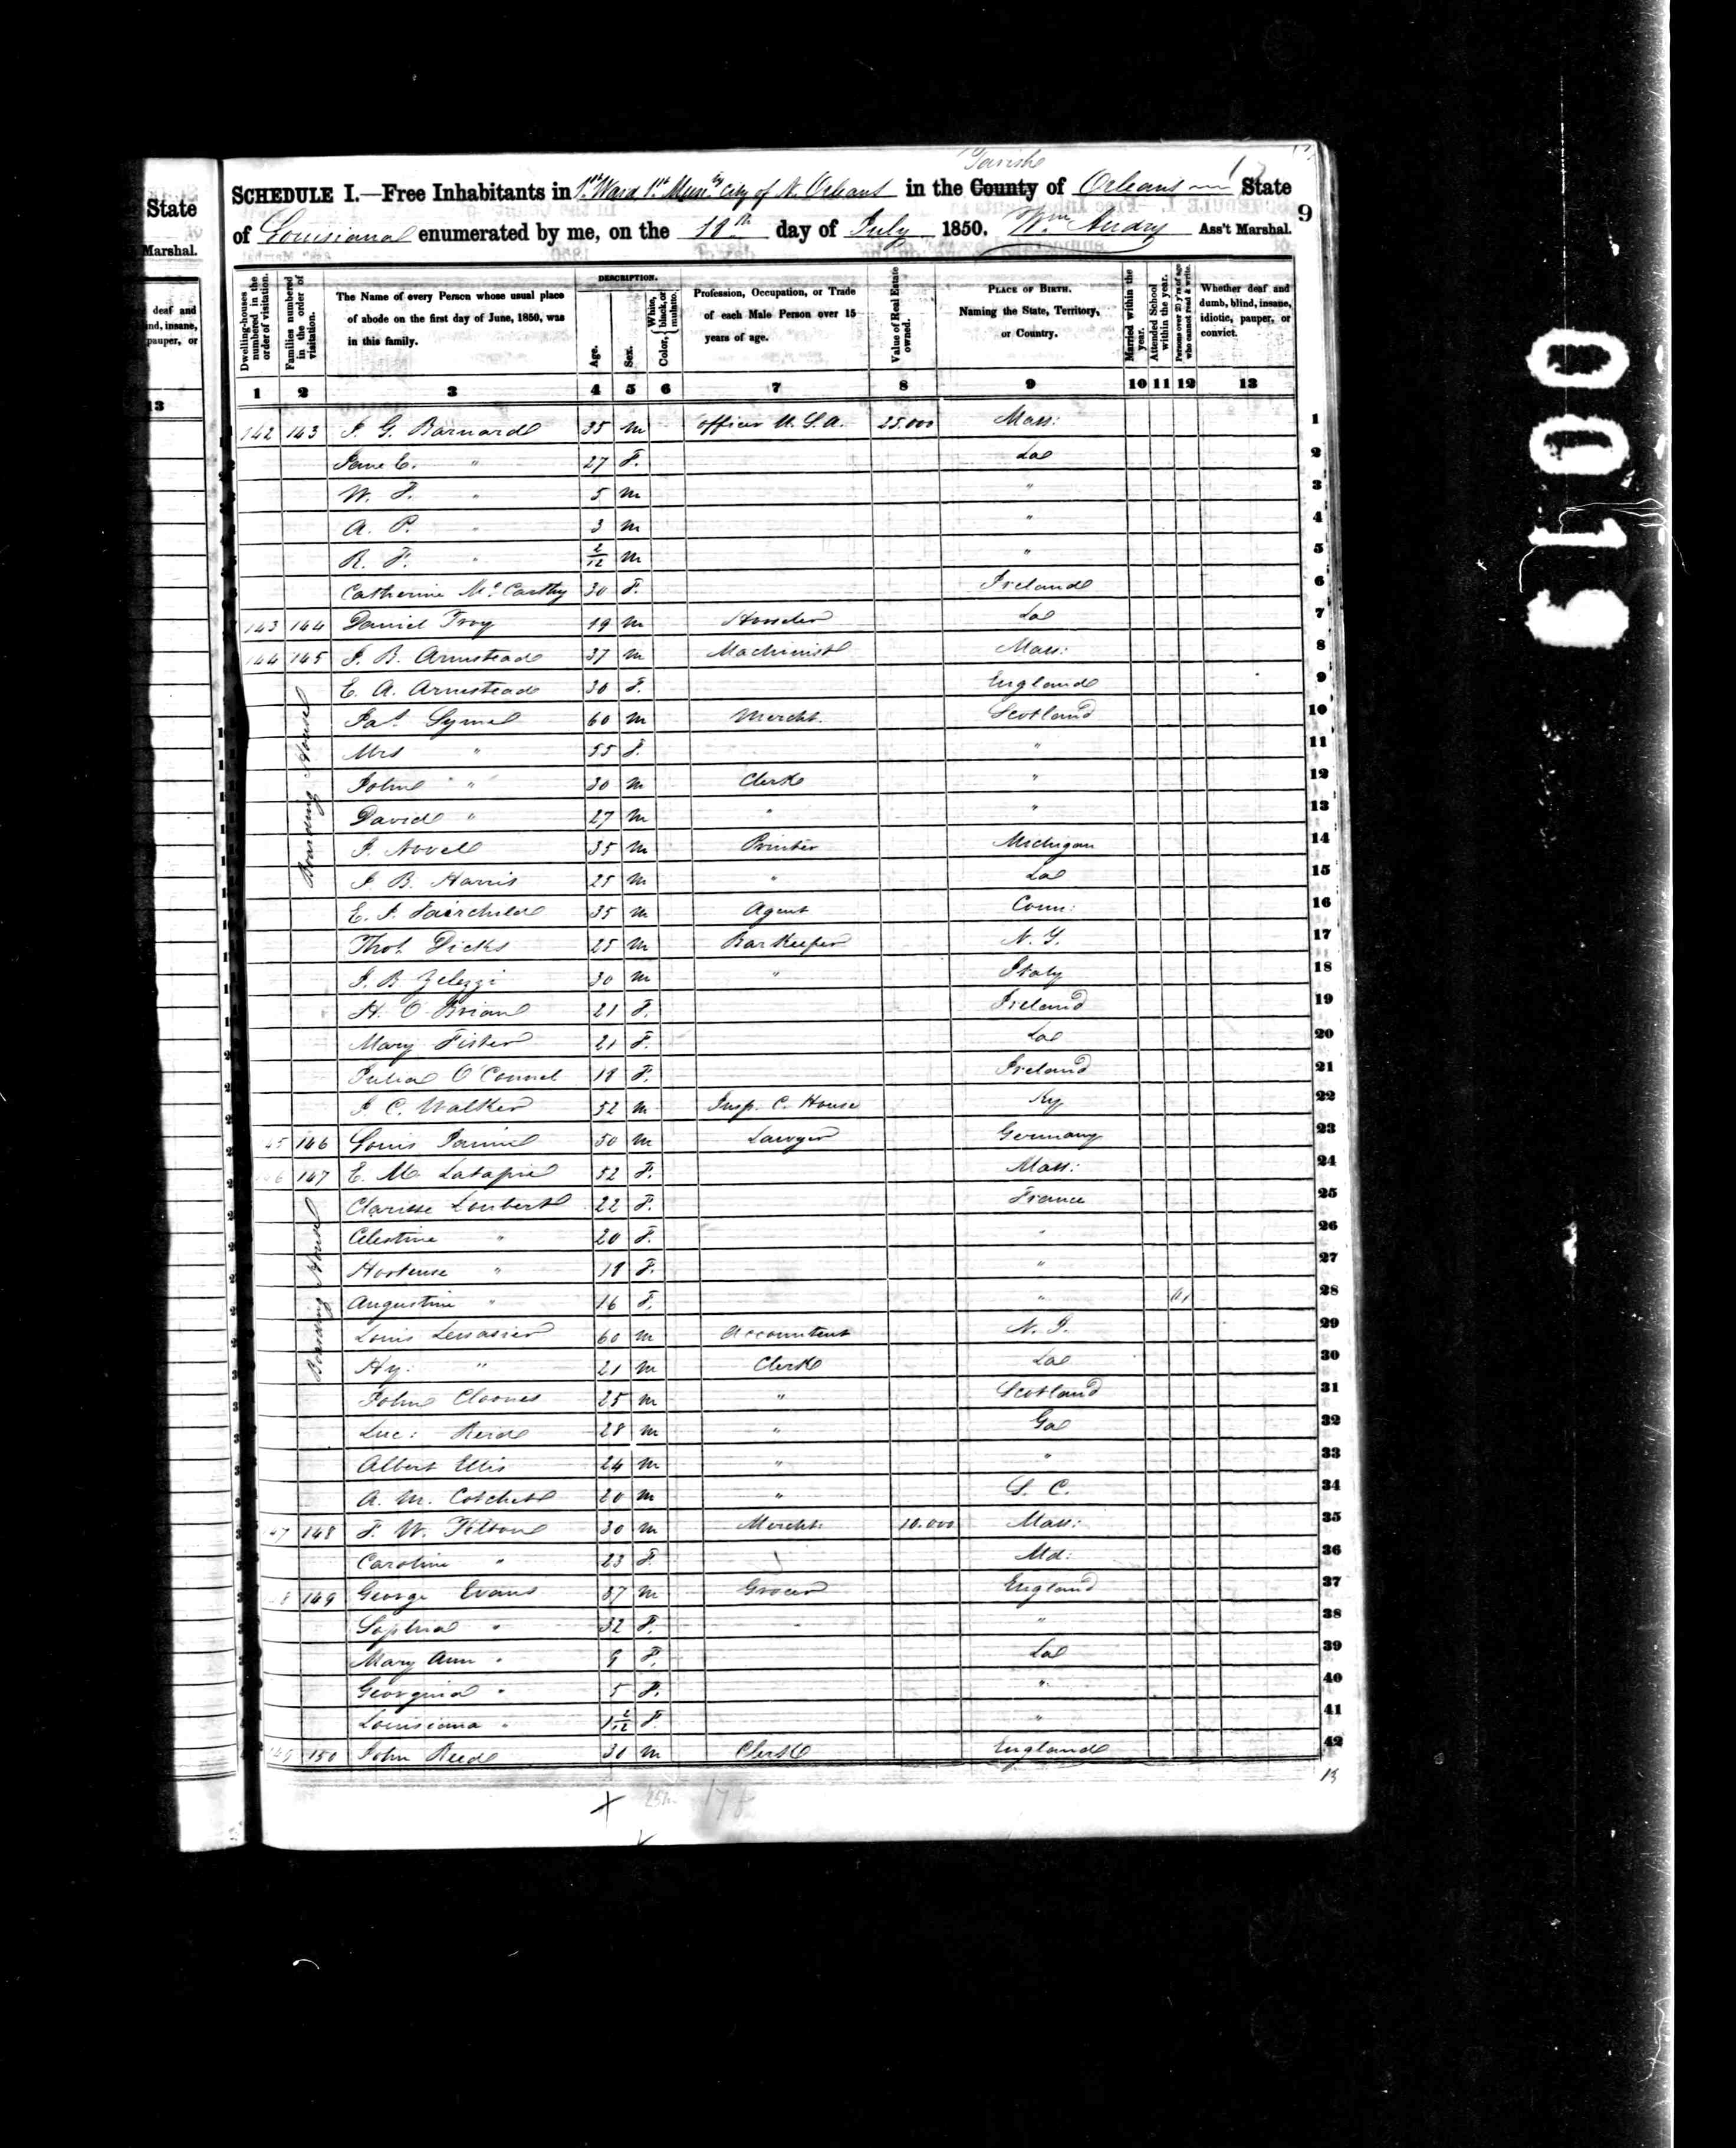 State
Marshal.
deaf and
ind, insane,
pauper, or
13
Parish
SCHEDULE I.—Free Inhabitants in 1st Ward 1st Mun.ty City of N. Orleans in the County of Orleans State
9
of Louisiana enumerated by me, on the 18th day of July 1850. Wm. Andry Ass't Marshal.
Dwelling-houses numbered in the order of visitation.
Families numbered in the order of visitation.
The Name of every Person whose usual place of abode on the first day of June, 1850, was in this family.
DESCRIPTION.
Age.
Sex.
Color, White, black, or mulatto.
Profession, Occupation, or Trade of each Male Person over 15 years of age.
Value of Real Estate owned.
PLACE OF BIRTH. Naming the State, Territory, or Country.
Married within the year.
Attended School within the year.
Persons over 20 y'rs of age who cannot read & write.
Whether deaf and dumb, blind, insane, idiotic, pauper, or convict.
1 2 3 4 5 6 7 8 9 10 11 12 13
142 143 J. G. Barnard 35 m Officer U.S.A. 25.000 Mass: 1
Jane E. " 27 F. La 2
W. F. " 5 m " 3
A. P. " 3 m " 4
R. F. " 2/12 m " 5
Catherine McCarthy 30 F. Ireland 6
143 144 Daniel Troy 19 m La 7
144 145 J. B. Armstead 37 m Machinist Mass: 8
E. A. Armstead 30 F. England 9
Boarding House
Jas. Syme 60 m Mercht. Scotland 10
Mrs " 55 F. " 11
John " 30 m Clerk " 12
David " 27 m " " 13
J. Novell 35 m Printer Michigan 14
J. B. Harris 25 m " La 15
E. J. Fairchild 35 m Agent Conn: 16
Thos. Dicks 25 m Barkeeper N. Y. 17
J. B. Zelezzi 30 m " Italy 18
H. O'Brian 21 F. Ireland 19
Mary Fisher 21 F. La 20
Julia O'Connel 18 F. Ireland 21
J. C. Walker 52 m Insp. C. House Ky 22
45 146 Louis 50 m Lawyer Germany 23
6 147 E. M. Latapie 52 F. Mass: 24
Boarding House
Clarisse Loubert 22 F. France 25
Celestine " 20 F. " 26
Hortense " 18 F. " 27
Augustine " 16 F. " 28
Louis Lessassier 60 m Accountent N. J. 29
Hy. " 21 m Clerk La 30
John Cloones 25 m " Scotland 31
Luc: Reid 28 m " Ga 32
Albert Ellis 24 m " " 33
A. M. Cotchett 20 m " S. C. 34
47 148 F. W. Tilton 30 m Mercht: 10.000 Mass: 35
Caroline " 23 F. Md: 36
8 149 George Evans 37 m Grocer England 37
Sophia " 32 F. " 38
Mary Ann " 9 F. La 39
Georgina " 5 F. " 40
Louisiana " 1 2/12 F. " 41
149 150 John Reed 30 m Clerk England 42
13
0013